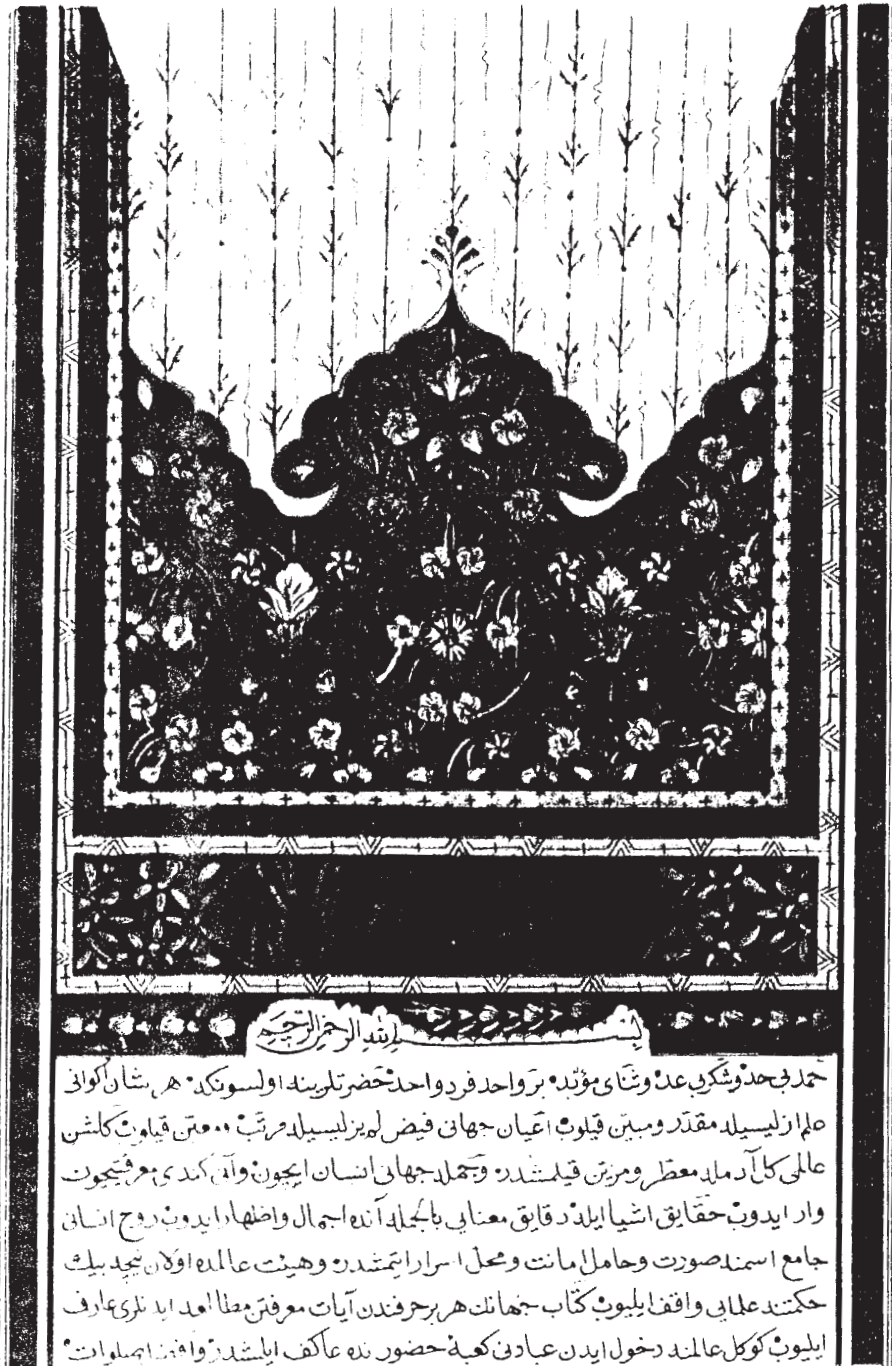 بسم الله الرحمن الرحيم
حمد بی حد و شکر بی عد و ثنای مؤبده بر واحد فرد واحد حضرتلرینه اولسونکه هر شان اکوانی
علم ازلیسیله مقدر و مبین قیلوب اعیان جهانی فیض لم یزلیسیله مرتب و معین قیلوب کلشن
عالمی کل آدمله معطر و مزین قیلمشدر و جمله جهانی انسان ایچون و آنی کندی معرفتیچون
وار ایدوب حقایق اشیا ایله دقایق معنایی بالجمله آنده اجمال و اظهار ایدوب روح انسانی
جامع اسمنه صورت و حامل امانت و محل اسرار ایتمشدر و هیئت عالمده اولان نیچه بیک
حکمتنه علمایی واقف ایلیوب کتاب جهانك هر بر حرفندن آیات معرفتن مطالعه ایدنلری عارف
ایلیوب کوکل عالمنه دخول ایدن عبادنی کعبۀ حضورنده عاکف ایلمشدر